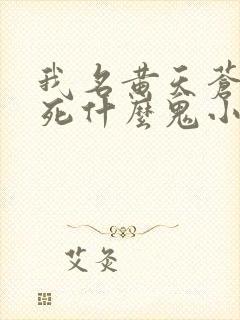 我名黄天苍
死什麼鬼小
艾灸